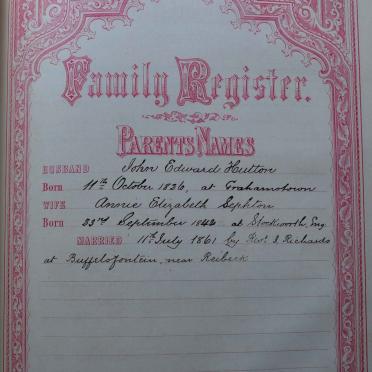 Family Register.
PARENTS NAMES
HUSBAND John Edward Hutton
Born 11th October 1826, at Grahamstown
WIFE Annie Elizabeth Sephton
Born 23rd September 1842 at Stockworth, Eng
MARRIED 11th July 1861 by Revd. I. Richards
at Buffelsfontein, near Reibeck